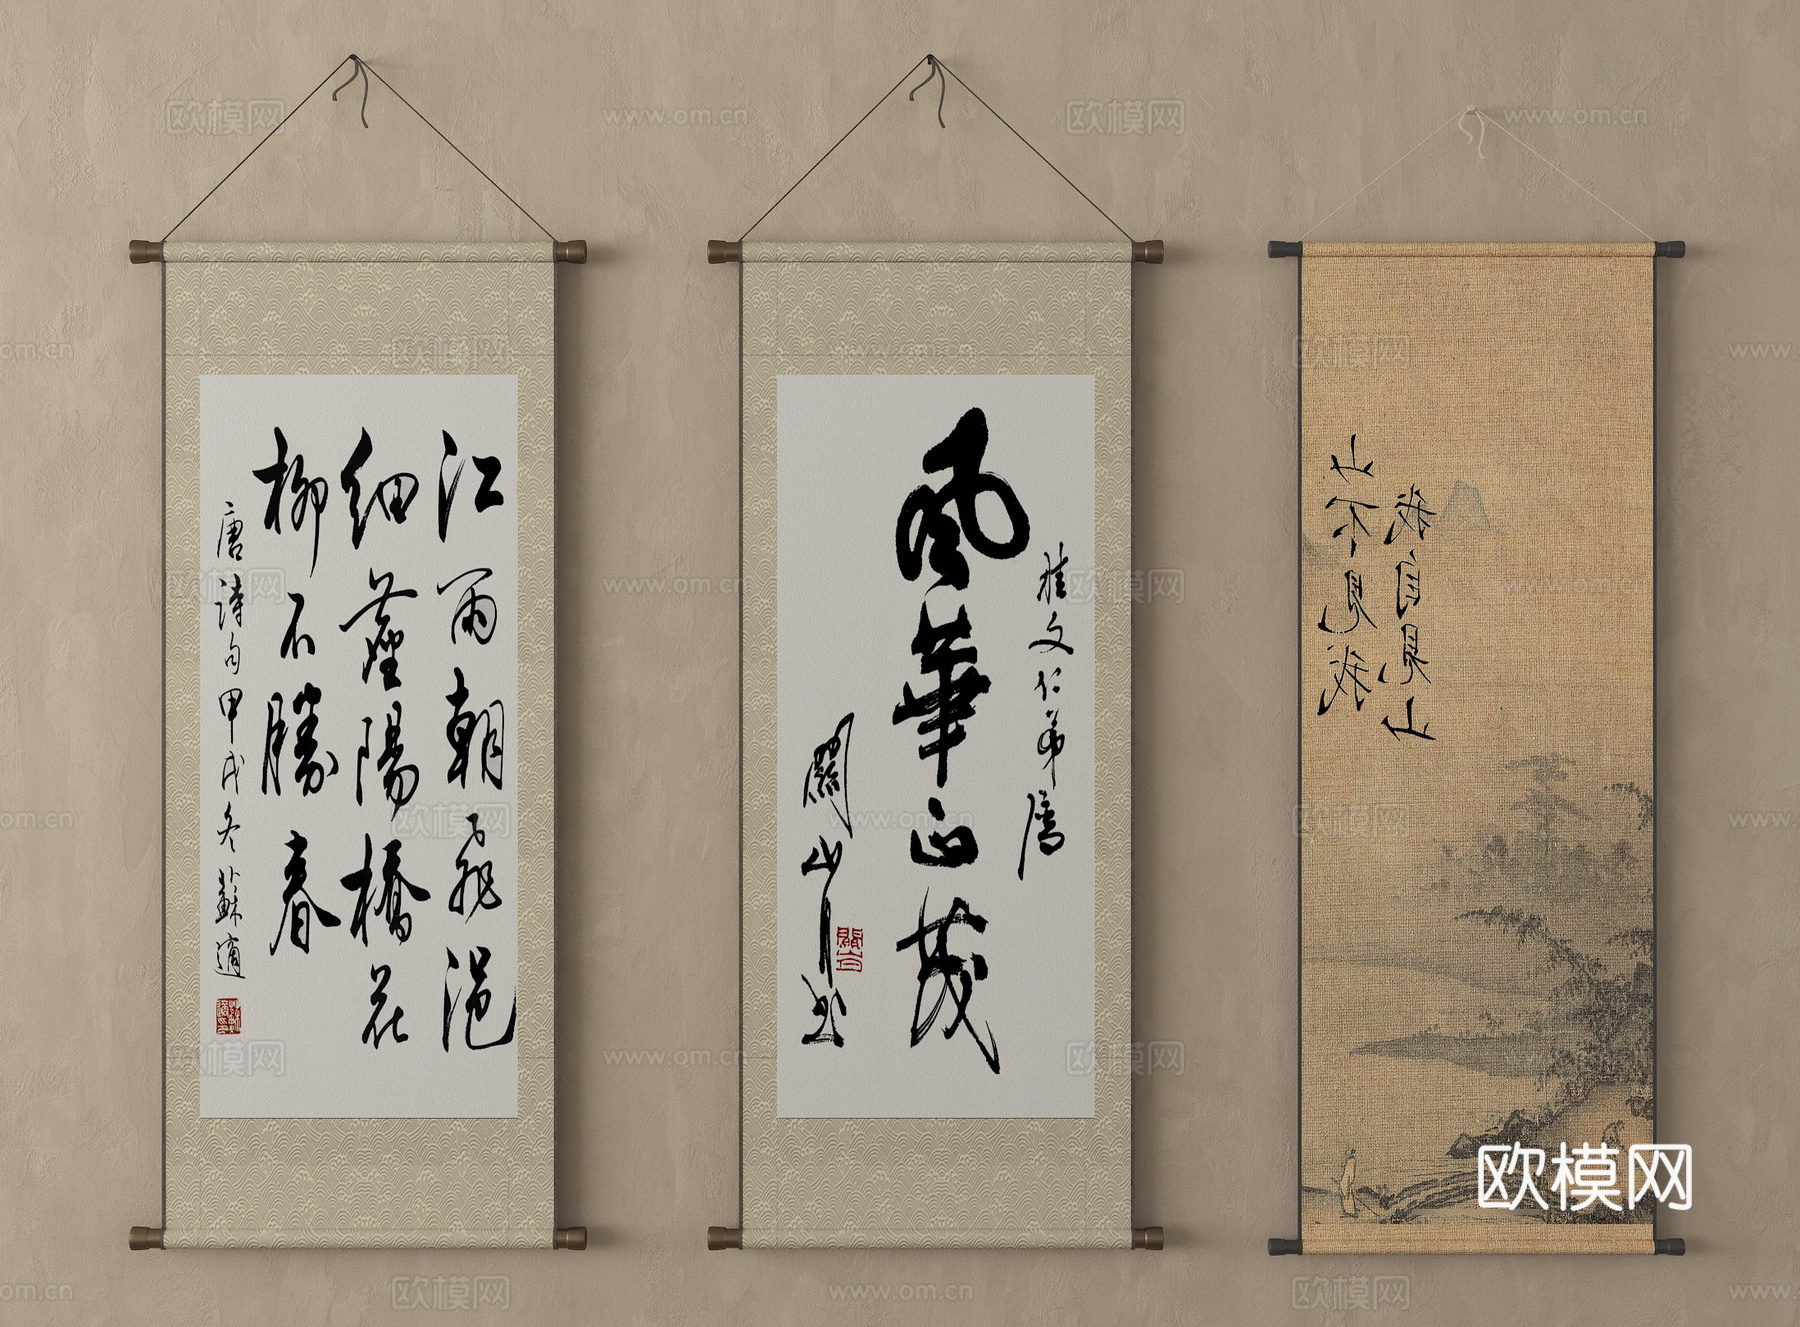 江雨朝飛浥
細塵陽橋花
柳不勝春
唐詩句甲戌冬蘇適
文仁弟属
風華正茂
關山月書
山不見我
我自見山
欧模网
www.om.cn